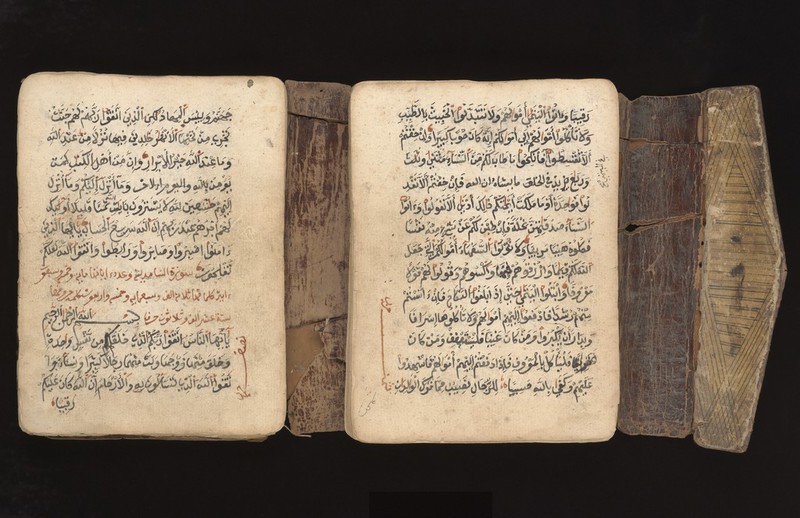 جهنم وبيس المهاد لكن الذين اتقوا ربهم لهم جنت
تجري من تحتها الانهر خلدين فيها نزلا من عند الله
وما عند الله خير للابرار وان من اهل الكتب لمن
يومن بالله واليوم الاخر وما انزل اليكم وما انزل
اليهم خشعين لله لا يشترون بايت الله ثمنا قليلا اوليك
لهم اجرهم عند ربهم ان الله سريع الحساب يايها الذين
ءامنوا اصبروا وصابروا ورابطوا واتقوا الله لعلكم
تفلحون سورة النساء مدنية وعدد اياتها
وسبعمائة وخمس واربعون كلمة حروفها
ستة عشر الف وثلاثون حرفا بسم الله الرحمن الرحيم
يايها الناس اتقوا ربكم الذي خلقكم من نفس وحدة
وخلق منها زوجها وبث منهما رجالا كثيرا ونساء وا
تقوا الله الذي تساءلون به والارحام ان الله كان عليكم
رقيبا
رقيبا واتوا اليتمى امولهم ولا تتبدلوا الخبيث بالطيب
ولا تاكلوا امولهم الى امولكم انه كان حوبا كبيرا وان خفتم
الا تقسطوا فانكحوا ما طاب لكم من النساء مثنى وثلث
وربع يزيد في الخلق ما يشاء ان الله فان خفتم الا تعد
لوا فوحدة او ما ملكت ايمنكم ذلك ادنى الا تعولوا واتوا
النساء صدقتهن نحلة فان طبن لكم عن شيء منه نفسا
فكلوه هنيا مريا ولا توتوا السفهاء امولكم التي جعل
الله لكم قيما وارزقوهم فيها واكسوهم وقولوا لهم قولا
معروفا وابتلوا اليتمى حتى اذا بلغوا النكاح فان انستم
منهم رشدا فادفعوا اليهم امولهم ولا تاكلوها اسرافا
وبدارا ان يكبروا ومن كان غنيا فليستعفف ومن كان
فقيرا فلياكل بالمعروف فاذا دفعتم اليهم امولهم فاشهدوا
عليهم وكفى بالله حسيبا للرجال نصيب مما ترك الولدان